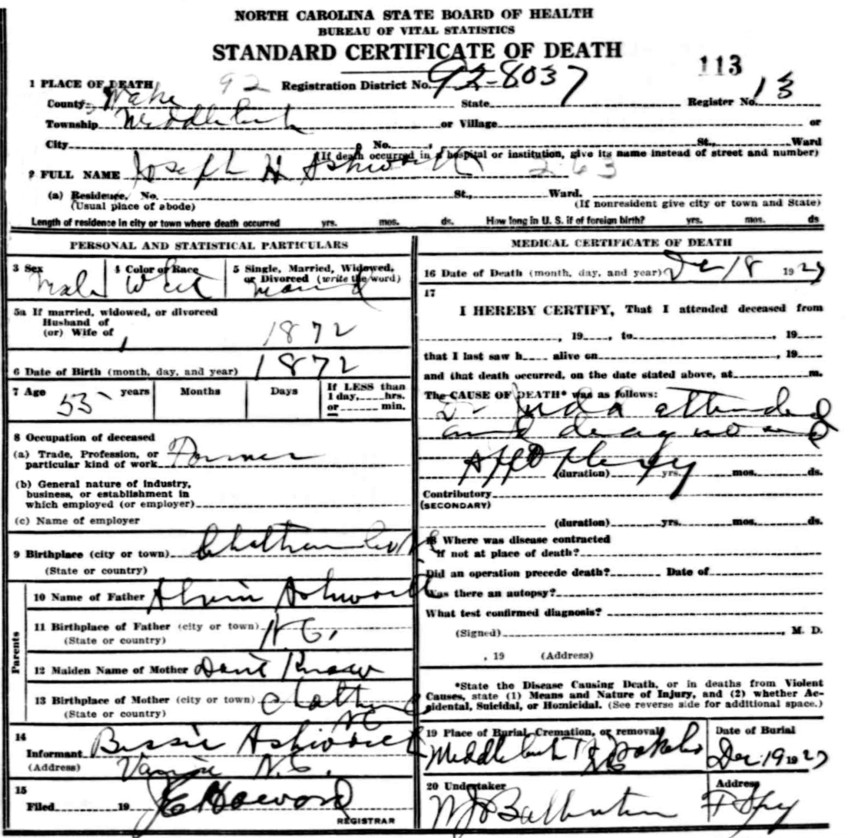 NORTH CAROLINA STATE BOARD OF HEALTH
BUREAU OF VITAL STATISTICS
STANDARD CERTIFICATE OF DEATH
113
1 PLACE OF DEATH 92 Registration District No. 92-8037
County Wake State Register No. 13
Township or Village or
City No. St., Ward
(If death occurred in a hospital or institution, give its name instead of street and number)
2 FULL NAME Joseph H Ashworth 263
(a) Residence, No. St., Ward.
(Usual place of abode) (If nonresident give city or town and State)
Length of residence in city or town where death occurred yrs. mos. ds. How long in U. S. if of foreign birth? yrs. mos. ds
PERSONAL AND STATISTICAL PARTICULARS
3 Sex 4 Color or Race 5 Single, Married, Widowed, or Divorced (write the word)
Male
5a If married, widowed, or divorced
Husband of
(or) Wife of 1872
6 Date of Birth (month, day, and year) 1872
7 Age 55 years Months Days If LESS than
1 day, hrs.
or min.
8 Occupation of deceased
(a) Trade, Profession, or
particular kind of work Farmer
(b) General nature of industry,
business, or establishment in
which employed (or employer)
(c) Name of employer
9 Birthplace (city or town) Chatham
(State or country)
Parents
10 Name of Father Alvin Ashworth
11 Birthplace of Father (city or town) N.C.
(State or country)
12 Maiden Name of Mother
13 Birthplace of Mother (city or town)
(State or country) NC
14
Informant Bessie Ashworth
(Address) N.C.
15
Filed 19
REGISTRAR
MEDICAL CERTIFICATE OF DEATH
16 Date of Death (month, day, and year) Dec 18 1927
17
I HEREBY CERTIFY, That I attended deceased from
, 19 , to , 19
that I last saw h alive on , 19
and that death occurred, on the date stated above, at m.
The CAUSE OF DEATH* was as follows:
attended
and
Appoplexy
(duration) yrs. mos. ds.
Contributory
(SECONDARY)
(duration) yrs. mos. ds.
18 Where was disease contracted
if not at place of death?
Did an operation precede death? Date of
Was there an autopsy?
What test confirmed diagnosis?
(Signed) M. D.
, 19 (Address)
*State the Disease Causing Death, or in deaths from Violent
Causes, state (1) Means and Nature of Injury, and (2) whether Ac-
cidental, Suicidal, or Homicidal. (See reverse side for additional space.)
19 Place of Burial, Cremation, or removal Date of Burial
Dec 19 1927
20 Undertaker Address